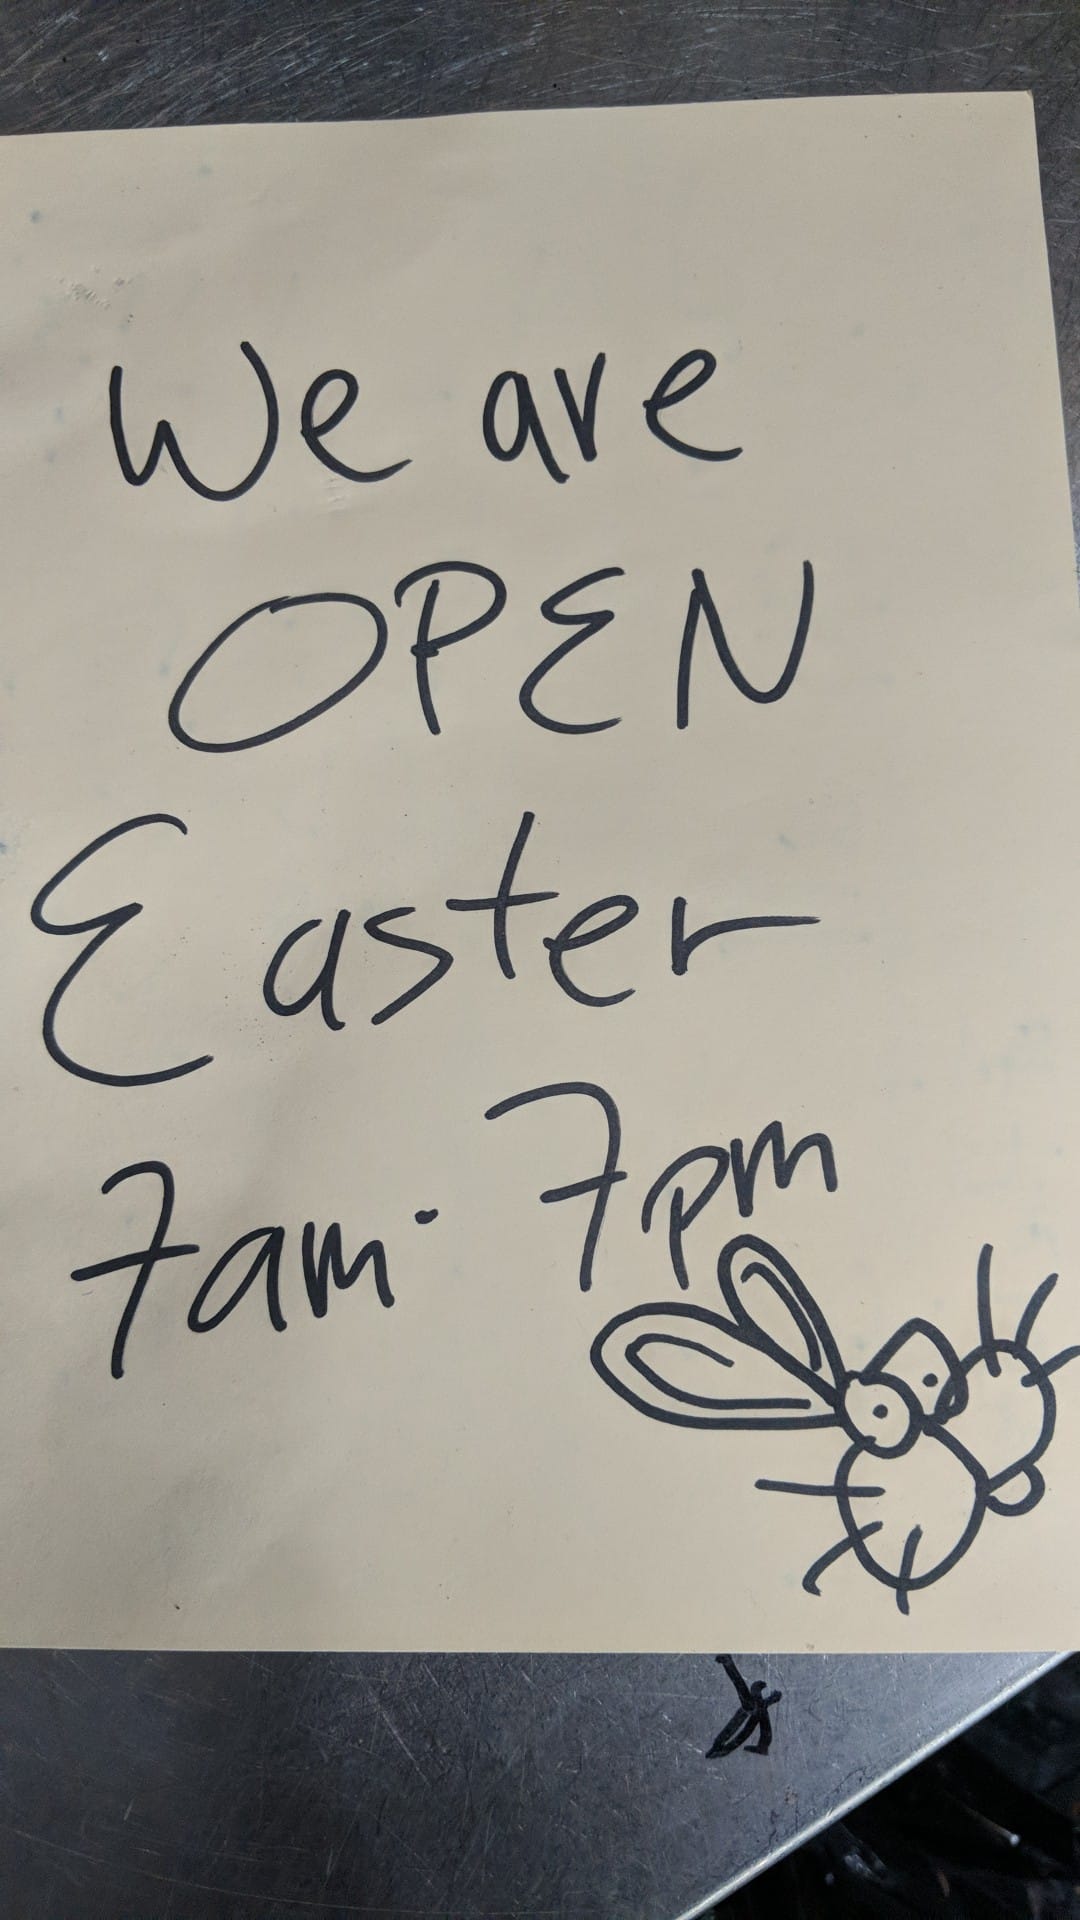 We are
OPEN
Easter
7am - 7pm